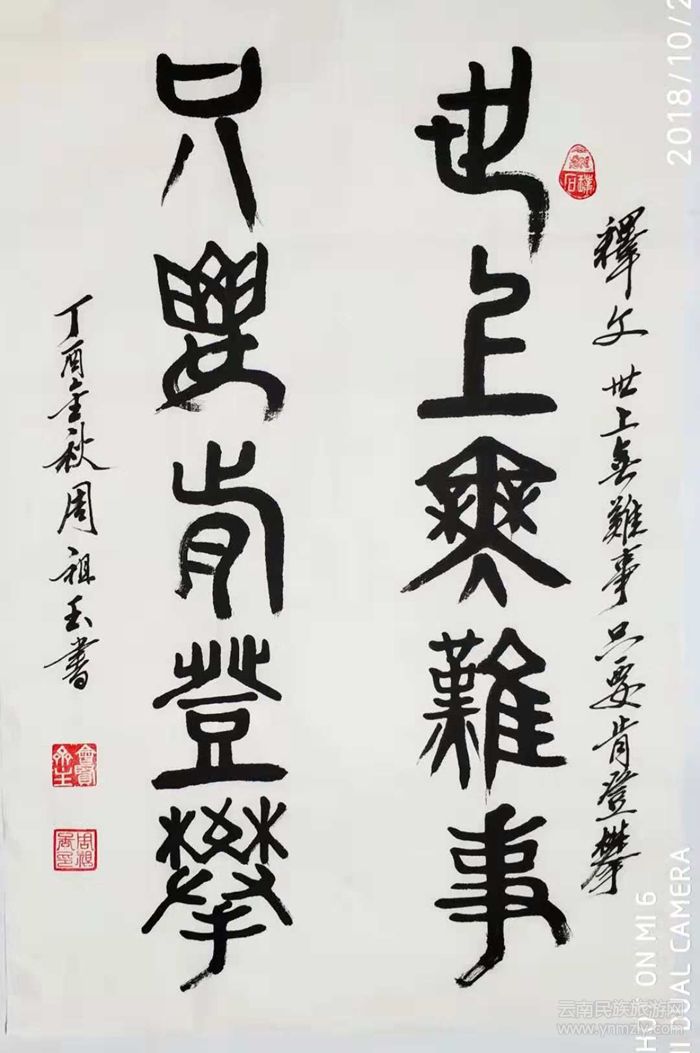 釋文 世上無難事只要肯登攀
世上無難事
只要肯登攀
丁酉金秋周祖玉書
2018/10/2
SHOT ON MI 6
MI DUAL CAMERA
云南民族旅游网
www.ynmzly.com